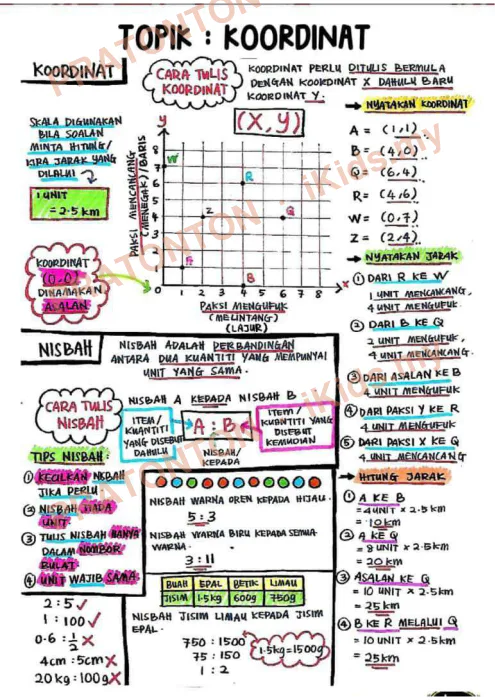 TOPIK : KOORDINAT
KOORDINAT
CARA TULIS
KOORDINAT
KOORDINAT PERLU DITULIS BERMULA
DENGAN KOORDINAT X DAHULU BARU
KOORDINAT Y.
(X,Y)
SKALA DIGUNAKAN
BILA SOALAN
MINTA HITUNG/
KIRA JARAK YANG
DILALUI
1 UNIT
= 2.5 km
KOORDINAT
(0,0)
DINAMAKAN
ASALAN
PAKSI MENCANCANG
(MENEGAK)/BARIS
y
8
7
6
5
4
3
2
1
0
W
R
Z
Q
A
B
0 1 2 3 4 5 6 7 8 x
PAKSI MENGUFUK
(MELINTANG)
(LAJUR)
NYATAKAN KOORDINAT
A = (1,1)
B = (4,0)
Q = (6,4)
R = (4,6)
W = (0,7)
Z = (2,4)
NYATAKAN JARAK
1 DARI R KE W
1 UNIT MENCANCANG,
4 UNIT MENGUFUK.
2 DARI B KE Q
2 UNIT MENGUFUK,
4 UNIT MENCANCANG.
3 DARI ASALAN KE B
4 UNIT MENGUFUK
4 DARI PAKSI Y KE R
4 UNIT MENGUFUK
5 DARI PAKSI X KE Q
4 UNIT MENCANCANG
HITUNG JARAK
1 A KE B
= 4 UNIT × 2.5 km
= 10 km
2 A KE Q
= 8 UNIT × 2.5 km
= 20 km
3 ASALAN KE Q
= 10 UNIT × 2.5km
= 25 km
4 B KE R MELALUI Q
= 10 UNIT × 2.5km
= 25km
NISBAH
NISBAH ADALAH PERBANDINGAN
ANTARA DUA KUANTITI YANG MEMPUNYAI
UNIT YANG SAMA.
CARA TULIS
NISBAH
NISBAH A KEPADA NISBAH B
ITEM/
KUANTITI
YANG DISEBUT
DAHULU
A : B
NISBAH/
KEPADA
ITEM/
KUANTITI YANG
DISEBUT
KEMUDIAN
TIPS NISBAH :
1 KECILKAN NISBAH
JIKA PERLU
2 NISBAH TIADA
UNIT
3 TULIS NISBAH HANYA
DALAM NOMBOR
BULAT
4 UNIT WAJIB SAMA
2 : 5 ✓
1 : 100 ✓
0.6 : 1/2 ✗
4cm : 5cm ✗
20 kg : 100g ✗
NISBAH WARNA OREN KEPADA HIJAU.
5 : 3
NISBAH WARNA BIRU KEPADA SEMUA
WARNA.
3 : 11
BUAH EPAL BETIK LIMAU
JISIM 1.5kg 600g 750g
NISBAH JISIM LIMAU KEPADA JISIM
EPAL.
750 : 1500
75 : 150
1 : 2
1.5kg = 1500g
PRATONTON
PRATONTON iKids.my
PRATONTON iKids.my